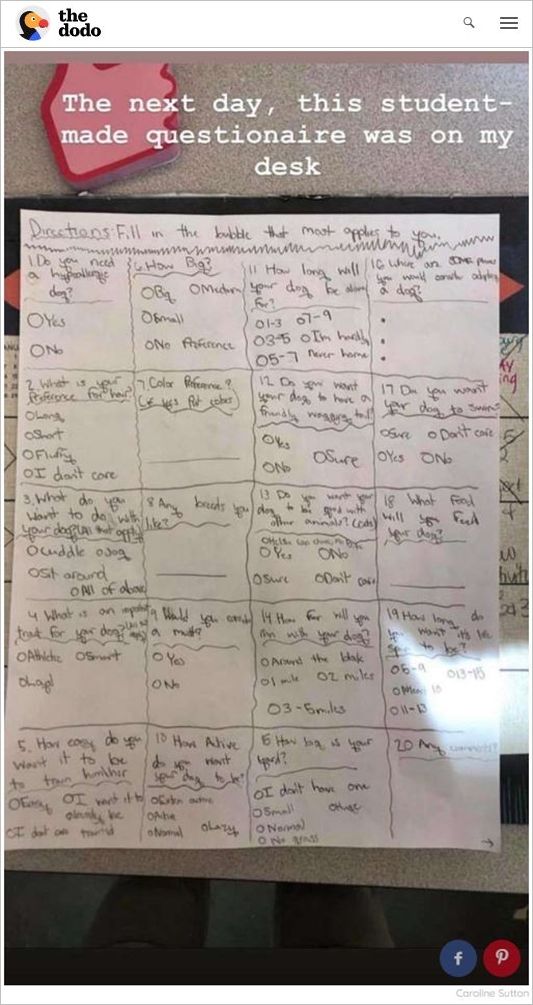 the
dodo
The next day, this student-
made questionaire was on my
desk
Directions: Fill in the bubble that most applies to you.
1. Do you need
a hypoallergic
dog?
O Yes
O No
2. What is your
Preference for hair?
O Long
O Short
O Fluffy
O I don't care
3. What do you
want to do with
your dog? (All that apply)
O cuddle O Jog
O Sit around
O All of above
4 What is an important
trait for your dog?
O Athletic O Smart
O Loyal
5. How easy do you
want it to be
to train him/her
O Easy O I want it to
already be
O I don't care trained
6 How Big?
O Big O Medium
O Small
O No Preference
7 Color Preference?
(if yes Put colors)
8 Any breeds you
like?
9 Would you consider
a mutt?
O Yes
O No
10 How Active
do you want
your dog to be?
O Extra active
O Active
O Normal O Lazy
11 How long will
your dog be alone
for?
O 1-3 O 7-9
O 3-5 O Im hardly
O 5-7 never home
12 Do you want
your dog to have a
friendly wagging tail?
O Yes
O No O Sure
13 Do you want your
dog to be good with
other animals? (cats)
O Yes O No
O Sure O Don't care
14 How far will you
run with your dog?
O Around the block
O 1 mile O 2 miles
O 3-5 miles
5 How big is your
yard?
O I don't have one
O Small O Huge
O Normal
O No grass
16 Where are some places
you would consider adopting
a dog?
17 Do you want
your dog to swim?
O Sure O Don't care
O Yes O No
18 What Food
will you Feed
your dog?
19 How long do
you want its life
span to be?
O 5-9 O 13-15
O 11-13
20 Any comments?
Caroline Sutton